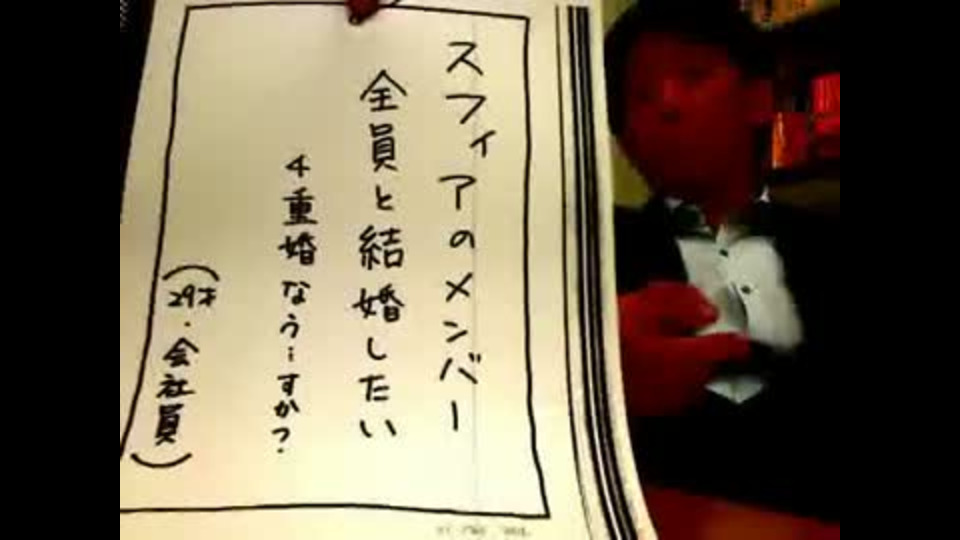 スフィアのメンバー
全員と結婚したい
4重婚なう…すか?
(29才・会社員)